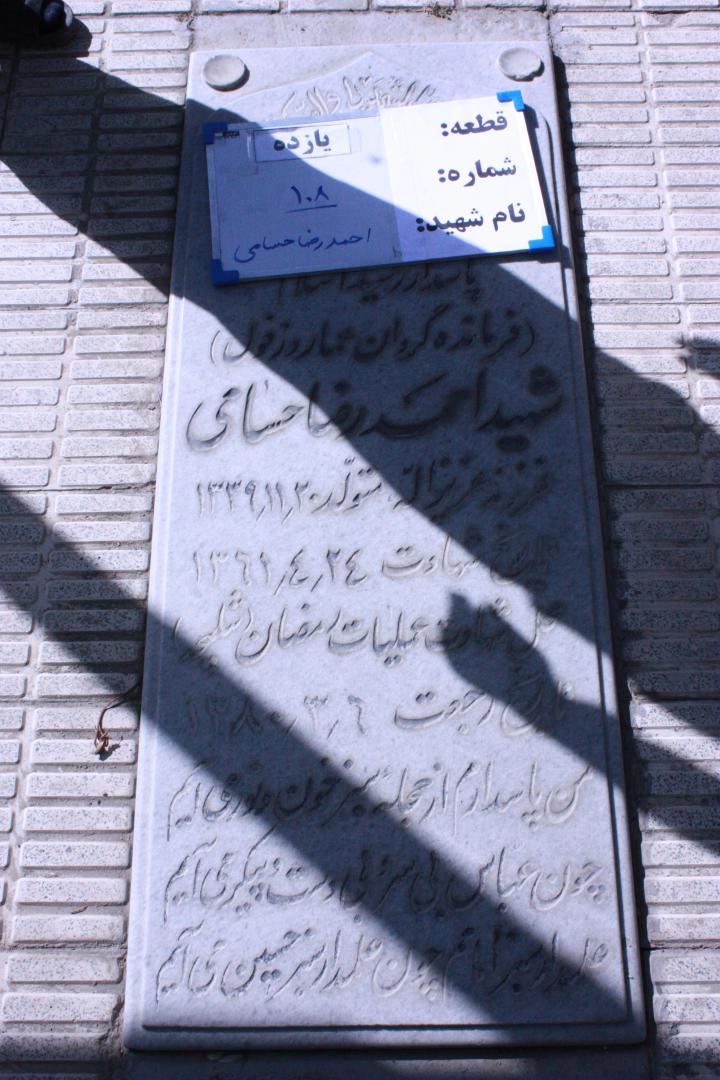 قطعه: یازده
شماره: ۱۰۸
نام شهید: احمدرضا حسامی
پاسدار رشید اسلام
(فرمانده گردان عمار دزفول)
شهید احمد رضا حسامی
فرزند عزیزاله متولد ۱۳۳۹٫۱۱٫۲۰
تاریخ شهادت ۱۳۶۱٫۴٫۲۴
محل شهادت عملیات رمضان (شلمچه)
تاریخ رجعت ۱۳۸۰٫۳٫۶
من پاسدارم از حجله سبز خون و نور می آیم
چون عباس بی سر و بی دست و پیکر می آیم
علمدار چون علمدار حسین می آیم